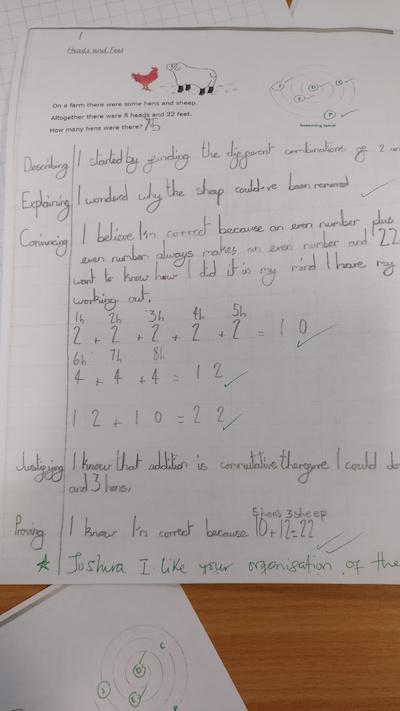 1
Heads and Feet
On a farm there were some hens and sheep.
Altogether there were 8 heads and 22 feet.
How many hens were there? 5
Reasoning Spiral
Describing I started by finding the different combinations of 2
Explaining I wondered why the sheep could've been removed
Convincing I believe I'm correct because an even number plus
even number always makes an even number and 22
want to know how I did it in my mind I have my
working out.
1h 2h 3h 4h 5h
2 + 2 + 2 + 2 + 2 = 10
6h 7h 8h
4 + 4 + 4 = 12
12 + 10 = 22
Justifying I know that addition is commutative therefore I could do
and 3 hens.
Proving I know I'm correct because 10+12=22
5 hens 3 sheep
Joshua I like your organisation of the
D
E